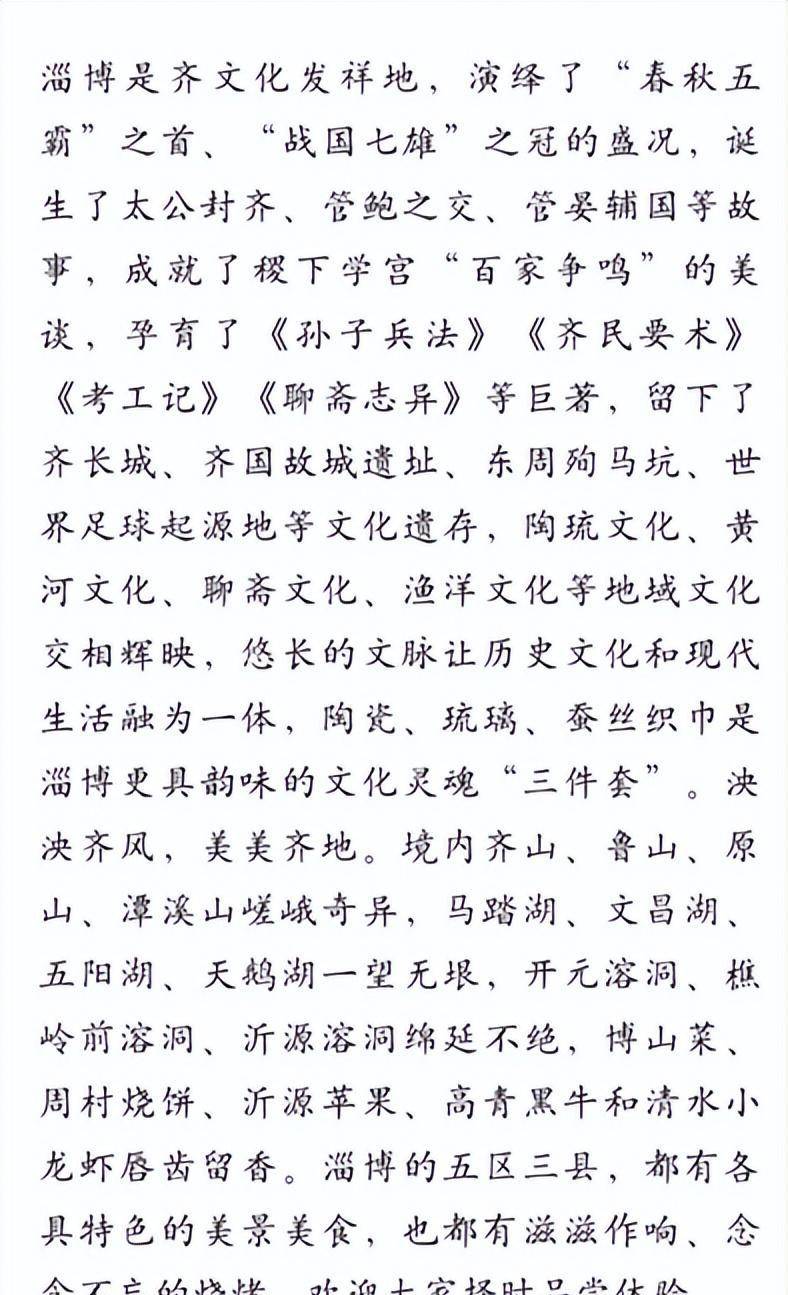 淄博是齐文化发祥地，演绎了“春秋五
霸”之首、“战国七雄”之冠的盛况，诞
生了太公封齐、管鲍之交、管晏辅国等故
事，成就了稷下学宫“百家争鸣”的美
谈，孕育了《孙子兵法》《齐民要术》
《考工记》《聊斋志异》等巨著，留下了
齐长城、齐国故城遗址、东周殉马坑、世
界足球起源地等文化遗存，陶琉文化、黄
河文化、聊斋文化、渔洋文化等地域文化
交相辉映，悠长的文脉让历史文化和现代
生活融为一体，陶瓷、琉璃、蚕丝织巾是
淄博更具韵味的文化灵魂“三件套”。泱
泱齐风，美美齐地。境内齐山、鲁山、原
山、潭溪山嵯峨奇异，马踏湖、文昌湖、
五阳湖、天鹅湖一望无垠，开元溶洞、樵
岭前溶洞、沂源溶洞绵延不绝，博山菜、
周村烧饼、沂源苹果、高青黑牛和清水小
龙虾唇齿留香。淄博的五区三县，都有各
具特色的美景美食，也都有滋滋作响、念
念不忘的烧烤，欢迎大家择时品尝体验。